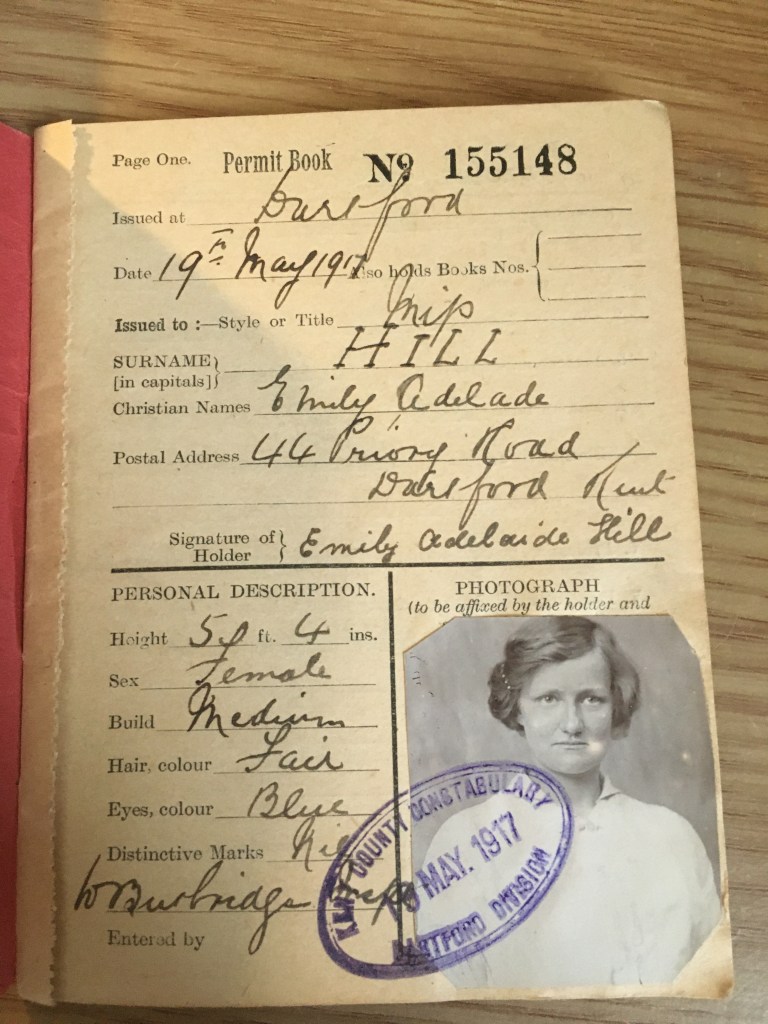 Page One. Permit Book Nº 155148
Issued at Dartford
Date 19th May 1917 Also holds Books Nos.
Issued to :—Style or Title Miss
SURNAME} HILL
[in capitals]}
Christian Names Emily Adelade
Postal Address 44 Priory Road
Dartford Kent
Signature of Holder} Emily Adelaide Hill
PERSONAL DESCRIPTION.
Height 5 ft. 4 ins.
Sex Female
Build Medium
Hair, colour Fair
Eyes, colour Blue
Distinctive Marks Nil
W Burbridge Insp
Entered by
PHOTOGRAPH
(to be affixed by the holder and
KENT COUNTY CONSTABULARY
MAY. 1917
DARTFORD DIVISION